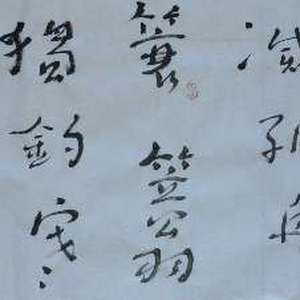 滅孤舟
簑笠翁
獨釣寒